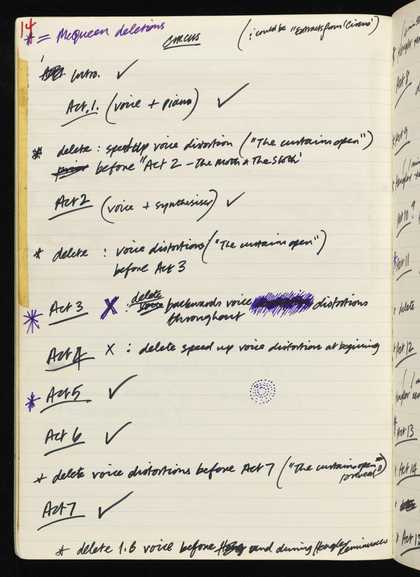 14
* = McQueen deletions
CIRCUS
(: could be "Extracts from 'Circus'
Intro. ✓
Act. 1. (voice + piano) ✓
* delete : speed up voice distortion ("The curtains open")
before "Act 2 – The Moth & The Sloth'
Act 2 (voice + synthesiser) ✓
* delete : voice distortions ("The curtains open")
before Act 3
* Act 3 X : delete backwards voice distortions
throughout
Act 4 X : delete speed up voice distortion at beginning
* Act 5 ✓
Act 6 ✓
* delete voice distortions before Act 7 ("The curtains open")
Act 7 ✓
* delete 1.6 voice before and during Hengler Reminisces